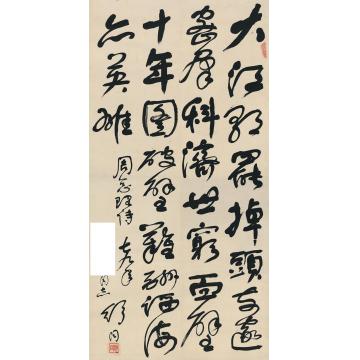 大江歌罷掉頭东邃
密群科濟世窮面壁
十年圖破壁難酬蹈海
亦英雄
周总理诗
同志 舒同